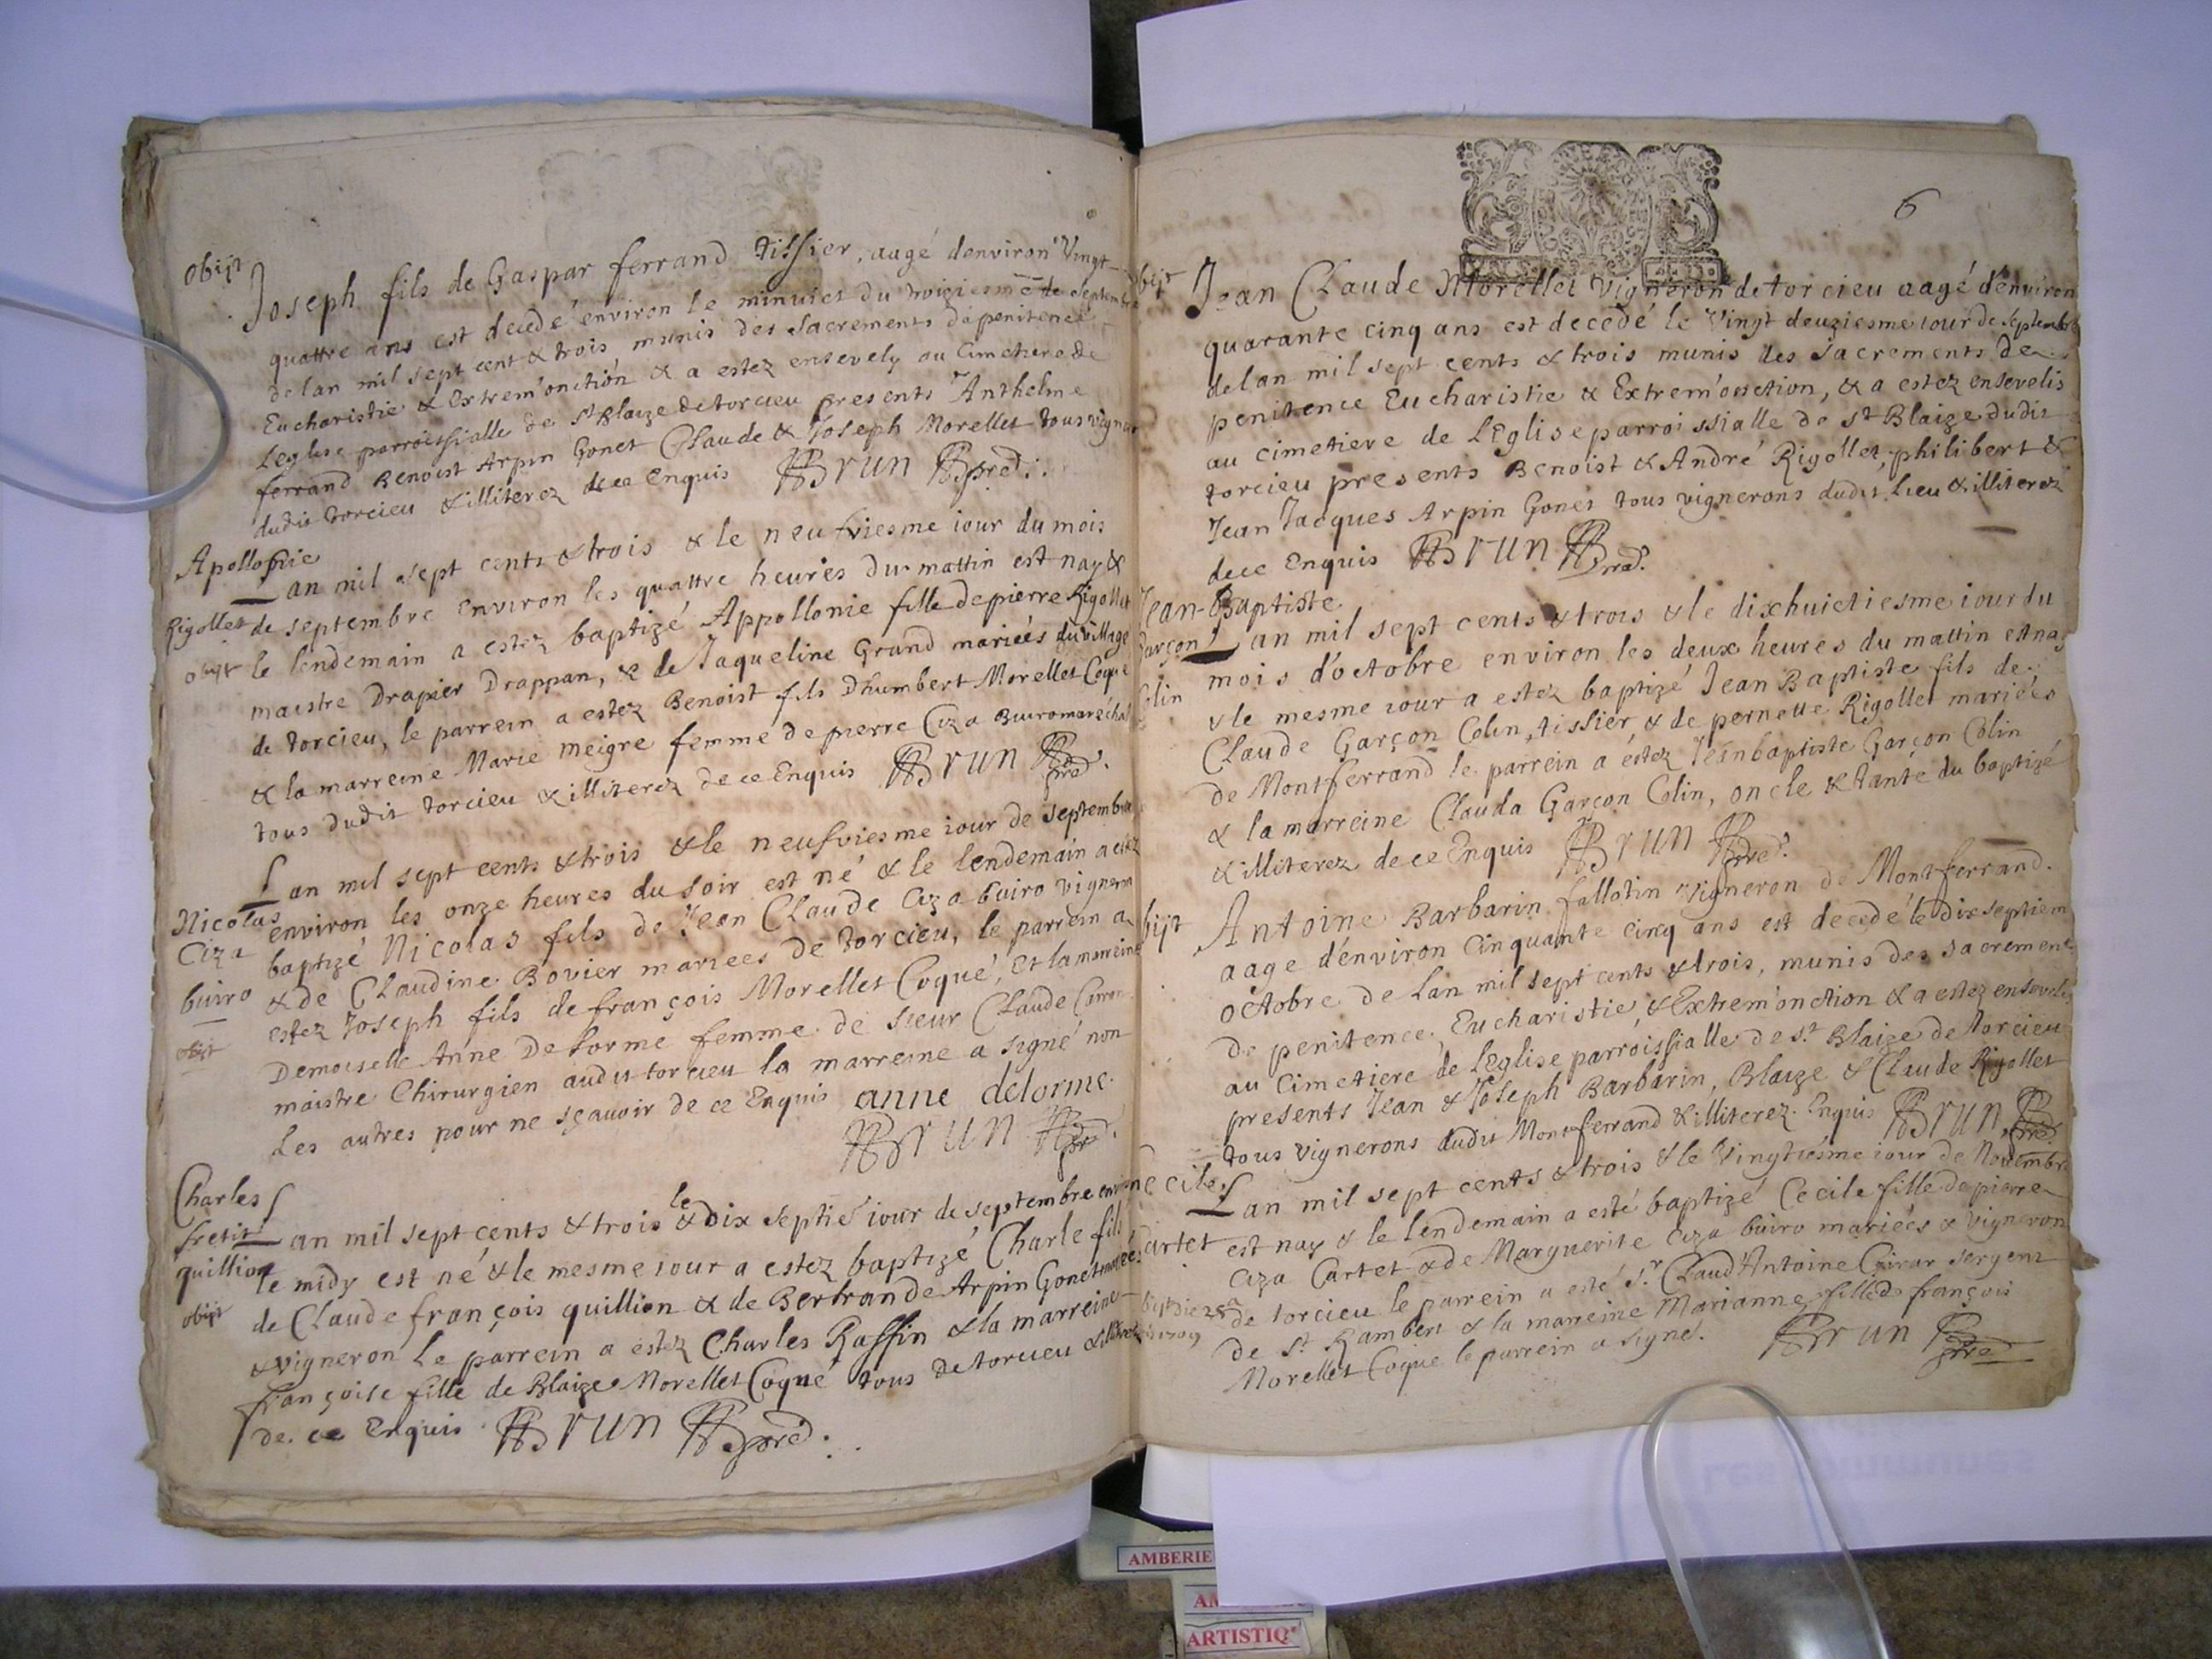 obijt
Joseph fils de Gaspar ferrand tissier, aagé denviron Vingt
quattre ans est decedé environ le minuict du troiziesme de septembre
de lan mil sept cent & trois munis des sacrements de penitence
Eucharistie & Extrem'onction & a estez ensevely au Cimetiere de
Leglise parroissialle de St Blaize de torcieu presents Anthelme
ferrand Benoist Arpin Gonet Claude & Joseph Morellet tous vigner
dudit torcieu & illiterez de ce Enquis Brun pre
Apollonie
Rigollet
obijt
Lan mil sept cents & trois & le neufviesme iour du mois
de septembre environ les quattre heures du mattin est nay &
le lendemain a estez baptizé Appollonie fille de pierre Rigollet
maistre Drapier Drappan, & de Jaqueline Grand mariées du village
de torcieu, le parrein a estez Benoist fils Dhumbert Morellet Coque
& la marreine Marie Meigre femme de pierre Ciza Buiro marechal
tous dudit torcieu & illiterez de ce Enquis Brun pre
Nicolas
Ciza
buiro
obijt
Lan mil sept cents & trois & le neufviesme iour de septembre
environ les onze heures du soir est né & le lendemain a estez
baptizé Nicolas fils de Jean Claude Ciza buiro vigneron
& de Claudine Bovier mariees de torcieu, le parrein a
estez Joseph fils de françois Morellet Coque, Et la marreine
Demoiselle Anne Delorme femme de sieur Claude
maistre Chirurgien audit torcieu la marreine a signé non
Les autres pour ne sçavoir de ce Enquis anne delorme
Brun pre
Charles
fretit
quillion
obijt
Lan mil sept cents & trois & le dix septie iour de septembre environ
le midy est né & le mesme iour a estez baptizé Charle fils
de Claude françois quillion & de Bertrande Arpin Gonet mariées
& vigneron Le parrein a estez Charles Raffin & la marreine
françoise fille de Blaize Morellet Coque tous de torcieu & illiterez
de ce Enquis Brun pre
6
bijt
Jean Claude Morellet Vigneron de torcieu aagé d'environ
quarante cinq ans est decedé le Vingt deuziesme iour de septembre
de lan mil sept cents & trois munis des sacrements de
penitence Eucharistie & Extrem'onction, & a estez ensevelis
au cimetiere de l'Eglise parroissialle de St Blaize dudit
torcieu presents Benoist & André Rigollet, philibert &
Jean Jacques Arpin Gonet tous vignerons dudit Lieu & illiterez
de ce Enquis Brun pre
Jean-Baptiste
Garçon
Colin
Lan mil sept cents & trois & le dixhuictiesme iour du
mois d'octobre environ les deux heures du mattin est nay
& le mesme iour a estez baptizé Jean Baptiste fils de
Claude Garçon Colin, tissier, & de pernette Rigollet mariées
de Montferrand le parrein a estez Jean baptiste Garçon Colin
& la marreine Clauda Garçon Colin, oncle & tante du baptizé
& illiterez de ce Enquis Brun pre
bijt
Antoine Barbarin fallotin Vigneron de Montferrand
aage d'environ Cinquante cinq ans est decedé le dixseptiem
octobre de Lan mil sept cents & trois, munis des sacrements
de penitence, Eucharistie, & Extrem'onction & a estez ensevelis
au Cimetiere de l'Eglise parroissialle de St Blaize de torcieu
presents Jean & Joseph Barbarin, Blaize & Claude Rigollet
tous vignerons dudit Montferrand & illiterez Enquis Brun pre
Cecile
Cartet
Lan mil sept cents & trois & le Vingtiésme iour de Novembre
est nay & le lendemain a esté baptizé Cecile fille de pierre
Ciza Cartet & de Marguerite Ciza buiro mariées & vigneron
de torcieu le parrein a esté Sr Claud'Antoine Girar sergent
de St Rambert & la marreine Marianne fille de françois
Morellet Coque le parrein a signé. Brun pre
AMBERIE
ARTISTIQ